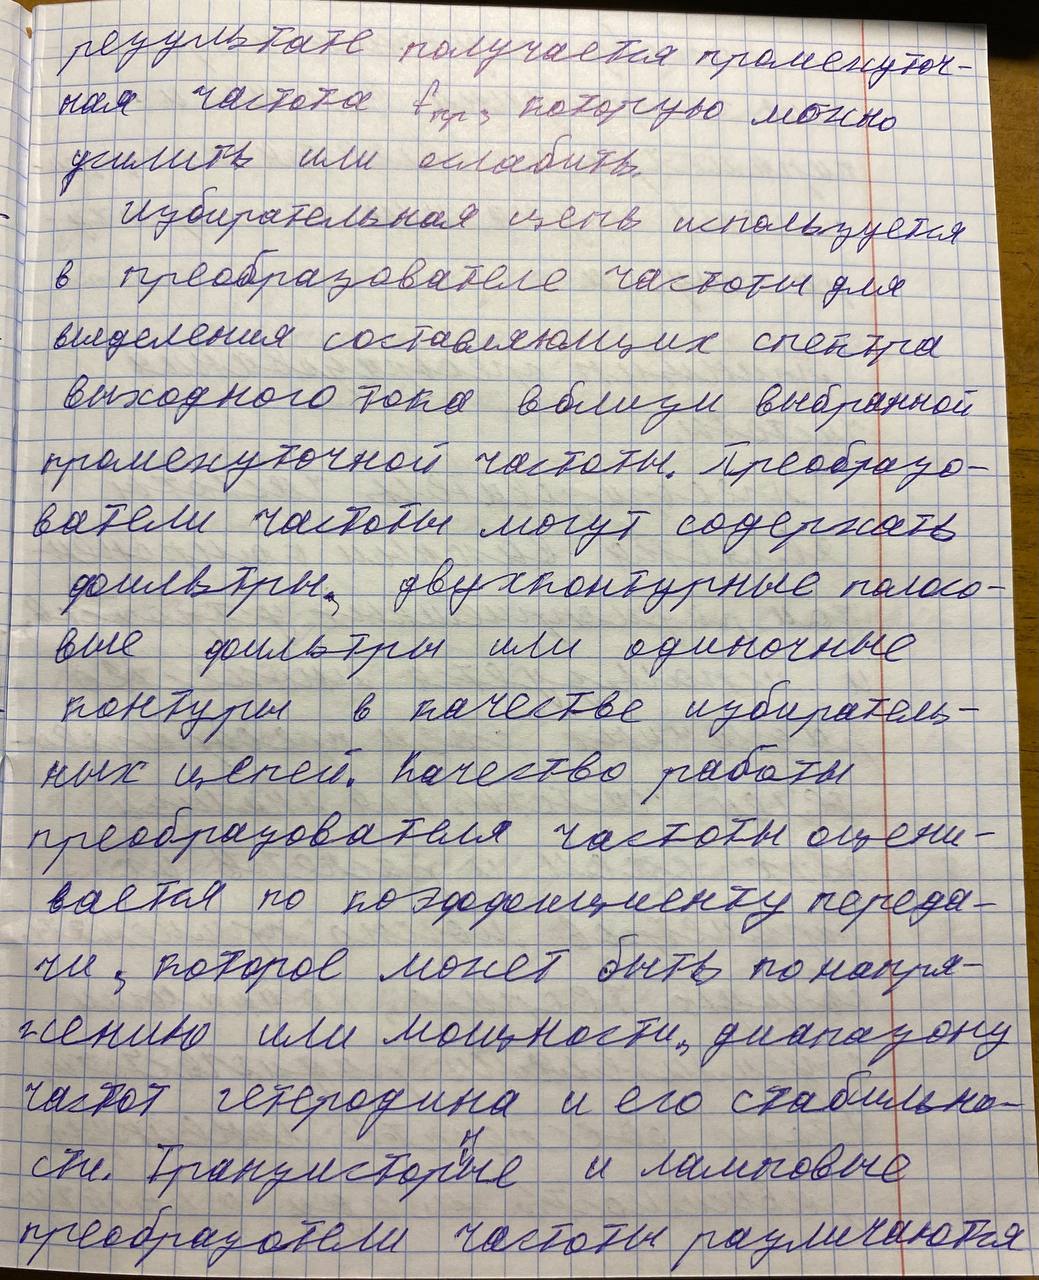 результате получается промежуточ-
ная частота fпр, которую можно
усилить или ослабить.
Избирательная цепь используется
в преобразователе частоты для
выделения составляющих спектра
выходного тока вблизи выбранной
промежуточной частоты. Преобразо-
ватели частоты могут содержать
фильтры, двухконтурные полосо-
вые фильтры или одиночные
контуры в качестве избиратель-
ных цепей. Качество работы
преобразователя частоты оцени-
вается по коэффициенту переда-
чи, которое может быть по напря-
жению или мощности, диапазону
частот гетеродина и его стабильно-
сти. Транзисторные и ламповые
преобразотели частоты различаются